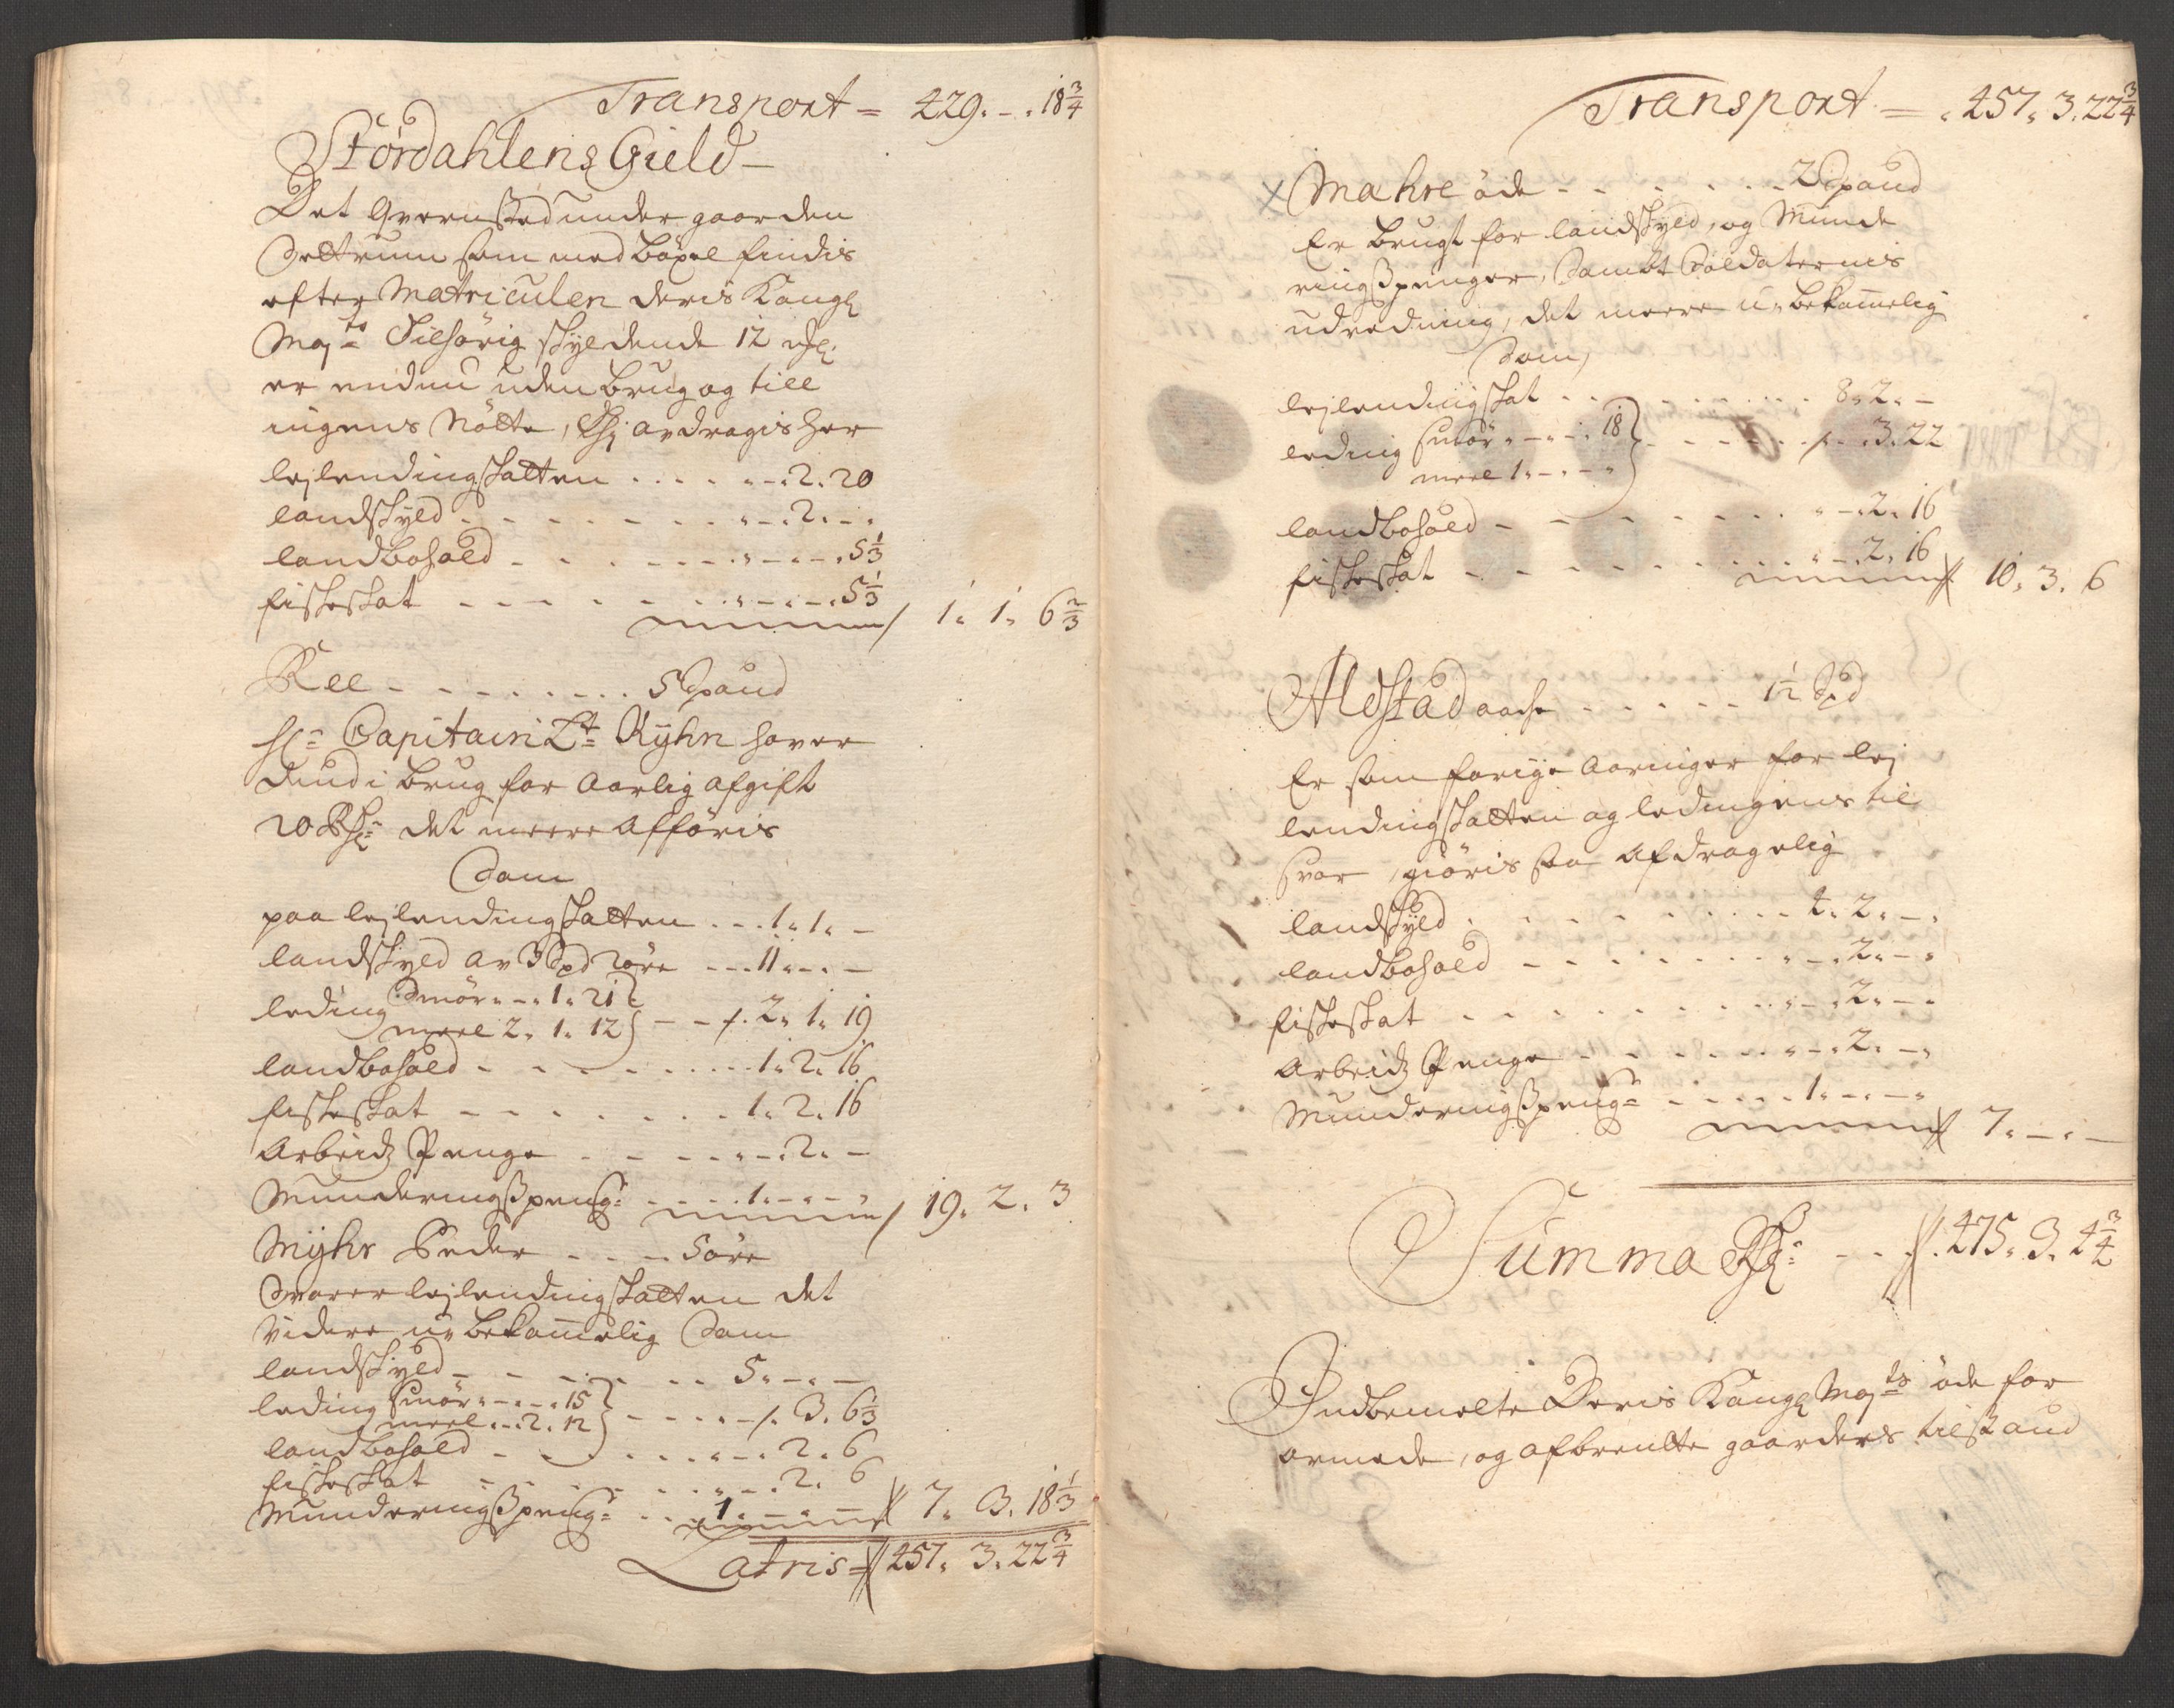 Transport = 429. - . 18 3/4
Størdahlens Gield -
Det Qvernsted under gaarden
Settrum som med böxel findis
efter Matriculen deris Kongl
Maj:ts Tilhörig skyldende 12 mkl:
er endnu uden brug og till
ingens nötte, Thj avdragis her
lejlendingskatten . . . . " - . 2. 20
landskyld - - - - - - - " - . 2. - .
landbohold - - - - - - " - - . 5 1/3
fiskeskat - - - - - - " - . - . 5 1/3 / 1. 1. 6 2/3
Ree - - - - - - - . 5 Spand
Hr: Capitain Lt: Kÿhn haver
dend i brug for Aarlig afgift
20 Rdr: det meere afföris
Som
paa lejlendingskatten . . . 1. 1. -
landskyld av 3 Spd 2 öre - - - 11. - . -
leding Smör . - . 1. 21
meel 2. 1. 12 } - - /. 2. 1. 19
landbohold - - - - - - - . 1. 2. 16
fiskeskat - - - - - - - 1. 2. 16
Arbeidz Penge - - - - " - . 2. -
Munderingspeng: - - - . 1. - . - . / 19. 2. 3
Mÿhr Peder - - - - 5 öre
Svarer lejlendingskatten det
videre u-bekommelig Som
landskyld - - - - - - 5. - . -
leding Smör . - . - . 15
meel . . 2. 12 } - - - - /. 3. 6 1/3
landbohold - - - - - . " - . 2. 6
fiskeskat - - - - - - " - . 2. 6
Munderingspeng: - - . 1. - . - 7. 3. 18 1/3
Latris = 457. 3. 22 3/4
Transport = . 457. 3. 22 3/4
x Mahre öde - - - - - - 2 Spand
Er brugt for landskyld, og Munde
ringspenger, Sambt Soldaternis
udredning, det meere u-bekommelig
Som,
lejlendingskat - - - - - - - . 8. 2. -
leding Smör . - . - . 18
meel 1. - . - . } - - - - /. - . 3. 22
landbohold - - - - - - - " - . 2. 16
fiskeskat - - - - - - - " - . 2. 16 10. 3. 6
Aldstad aasse - - - - - 1 1/2 Spd
Er som forige Aaringer for lej
lendingskatten og ledingens til
svar, giöris saa afdragelig
landskyld . - - - - - - - . 2. 2. - .
landbohold - - - - - - - " - . 2. - .
fiskeskat - - - - - - - " - . 2. - .
Arbeidz Penge - - - - - " - . 2. - .
Munderingspeng: - - - - . 1. - . - . 7. - . -
Summa Rdr: - - . 475. 3. 4 3/4
Indbemelte Deris Kongl Maj:ts öde for
armede, og afbrendte gaarders tilstand